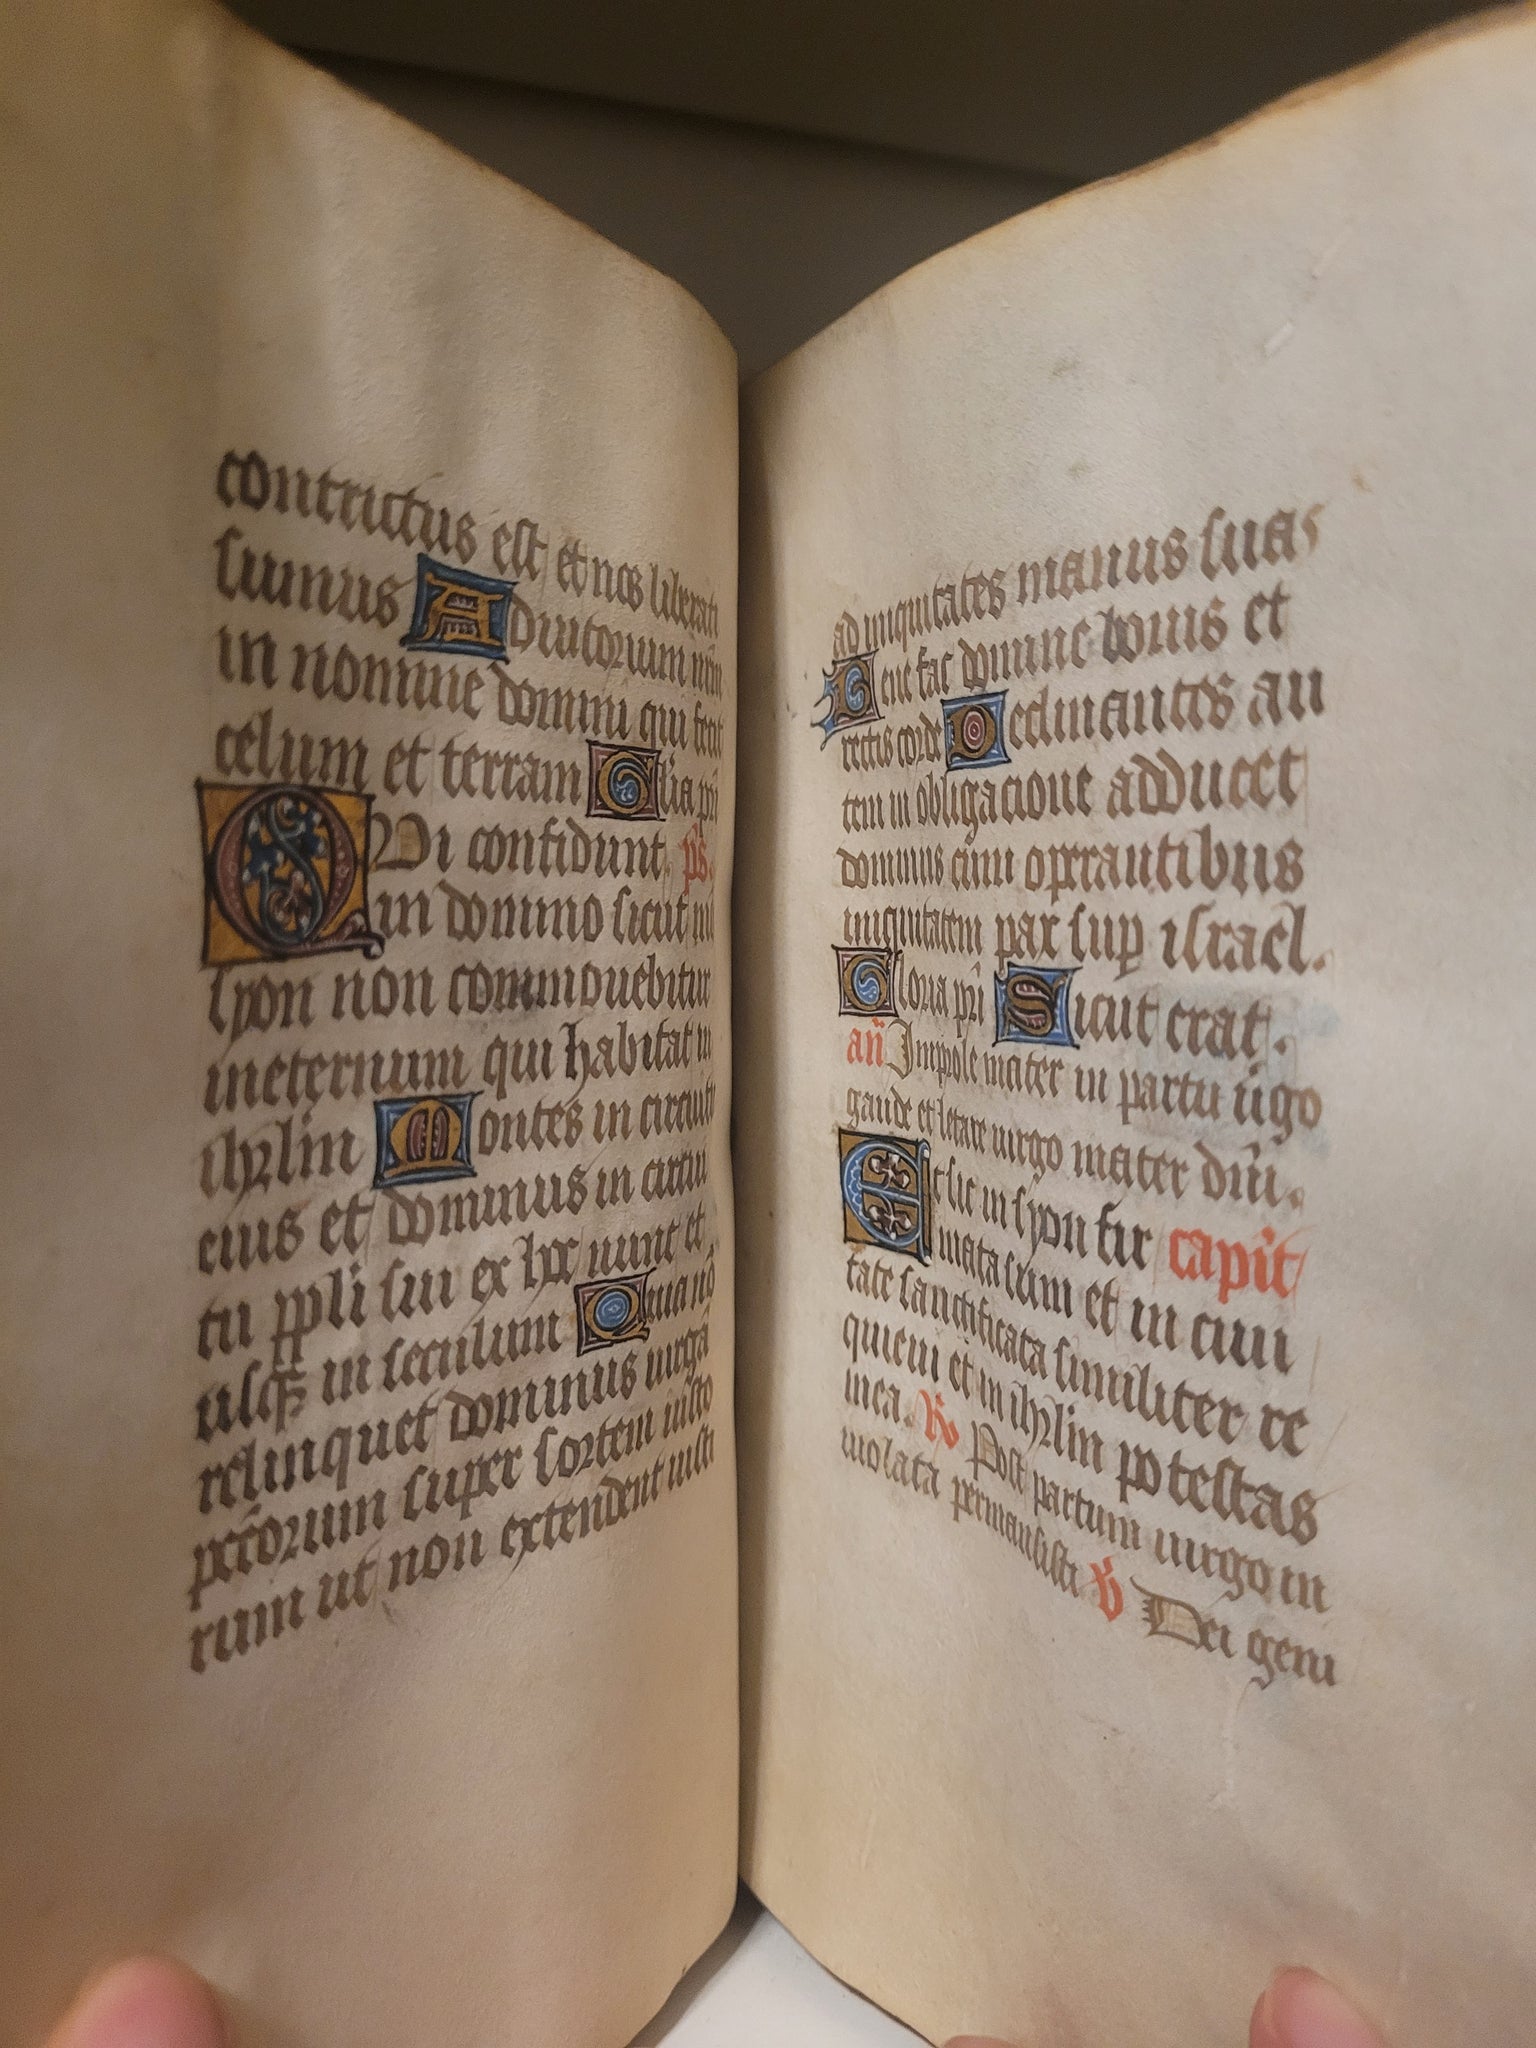 contrictus est et nos liberati
sumus Adiutorium nr̄m
in nomine domini qui fecit
celum et terram Gl'ia pr̄i
QVi confidunt ps̄.
in domino sicut m
syon non commouebitur
ineternum qui habitat in
ihrl̄m Montes in circuitu
eius et dominus in circui
tu ppl̄i sui ex hoc nunc et
usq̄ in seculum Quia nō
relinquet dominus uirgā
pctōrum super sortem iusto
rum ut non extendent iusti
ad iniquitates manus suas
Bene fac domine bonis et
rectis corde Declinantes au
tem in obligacione adducet
dominus cum operantibus
iniquitatem pax sup̄ israel.
Gloria pr̄i Sicut erat.
an̄ Improle mater in partu ūgo
gaude et letare uirgo mater dn̄i.
Et sic in syon fir capit̄
mata sum et in ciui
tate sanctificata similiter re
quieui et in ihrl̄m potestas
mea. R̄ Post partum uirgo in
uiolata permansisti V̄ Dei geni